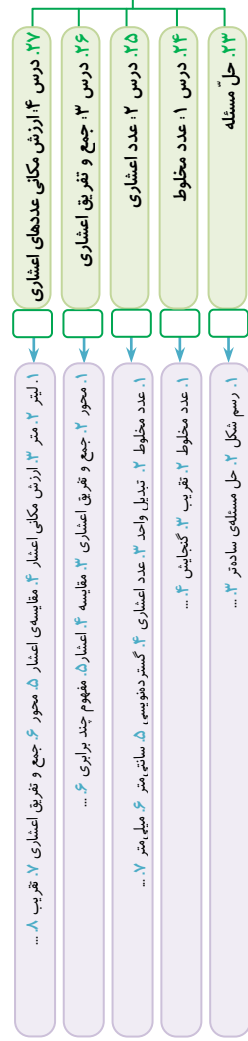 ۲۳. حلّ مسئله
۱. رسم شکل ۲. حل مسئله‌ی ساده‌تر ۳. ...
۲۴. درس ۱: عدد مخلوط
۱. عدد مخلوط ۲. تقریب ۳. گنجایش ۴. ...
۲۵. درس ۲: عدد اعشاری
۱. عدد مخلوط ۲. تبدیل واحد ۳. عدد اعشاری ۴. گسترده‌نویسی ۵. سانتی‌متر ۶. میلی‌متر ۷. ...
۲۶. درس ۳: جمع و تفریق اعشاری
۱. محور ۲. جمع و تفریق اعشاری ۳. مقایسه ۴. اعشار ۵. مفهوم چند برابری ۶. ...
۲۷. درس ۴: ارزش مکانی عددهای اعشاری
۱. لیتر ۲. متر ۳. ارزش مکانی اعشار ۴. مقایسه‌ی اعشار ۵. محور ۶. جمع و تفریق اعشاری ۷. تقریب ۸. ...